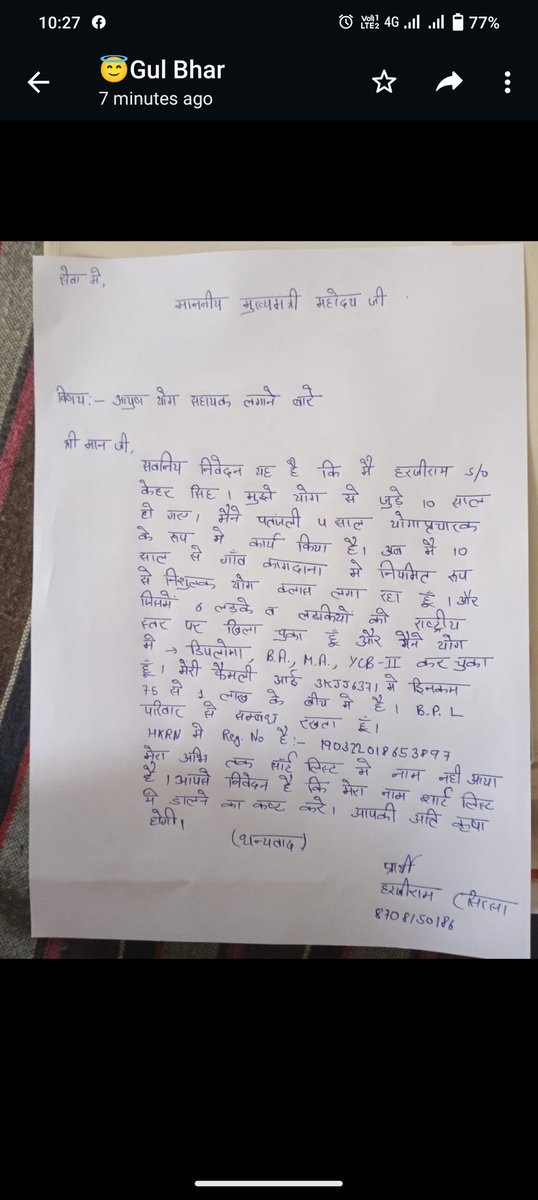 10:27
Vol1 LTE2 4G 77%
😇Gul Bhar
7 minutes ago
सेवा मे,
माननीय मुख्यमंत्री महोदय जी
विषय:- आयुष योग सहायक लगाने बारे
श्री मान जी,
सवनिय निवेदन यह है कि मै हरजीराम S/o
केहर सिह। मुझे योग से जुड़े 10 साल
हो गए। मैने पतंजली 4 साल योगा प्रचारक
के रूप मे कार्य किया है। अब मै 10
साल से गाँव कागदाना मे नियमित रूप
से निशुल्क योग क्लास लगा रहा हूँ। और
जिसमें 6 लड़के व लडकियों को राष्ट्रीय
स्तर पर खिला चुका हूँ और मैने योग
मे → डिप्लोमा, B.A., M.A., YCB-II कर चुका
हूँ। मेरी फैमली आई 3KJJ6371 मे इनकम
75 से 1 लाख के बीच मे है। B.P.L
परिवार से सम्बध रखता हूँ।
HKRN मे Reg. No है:- 190322018653897
मेरा अभि तक शॉर्ट लिस्ट मे नाम नही आया
है। आपसे निवेदन है कि मेरा नाम शार्ट लिस्ट
मे डालने का कष्ट करे। आपकी अति कृपा
होगी।
(धन्यवाद)
प्रार्थी
हरजीराम (सिरसा
8708150186